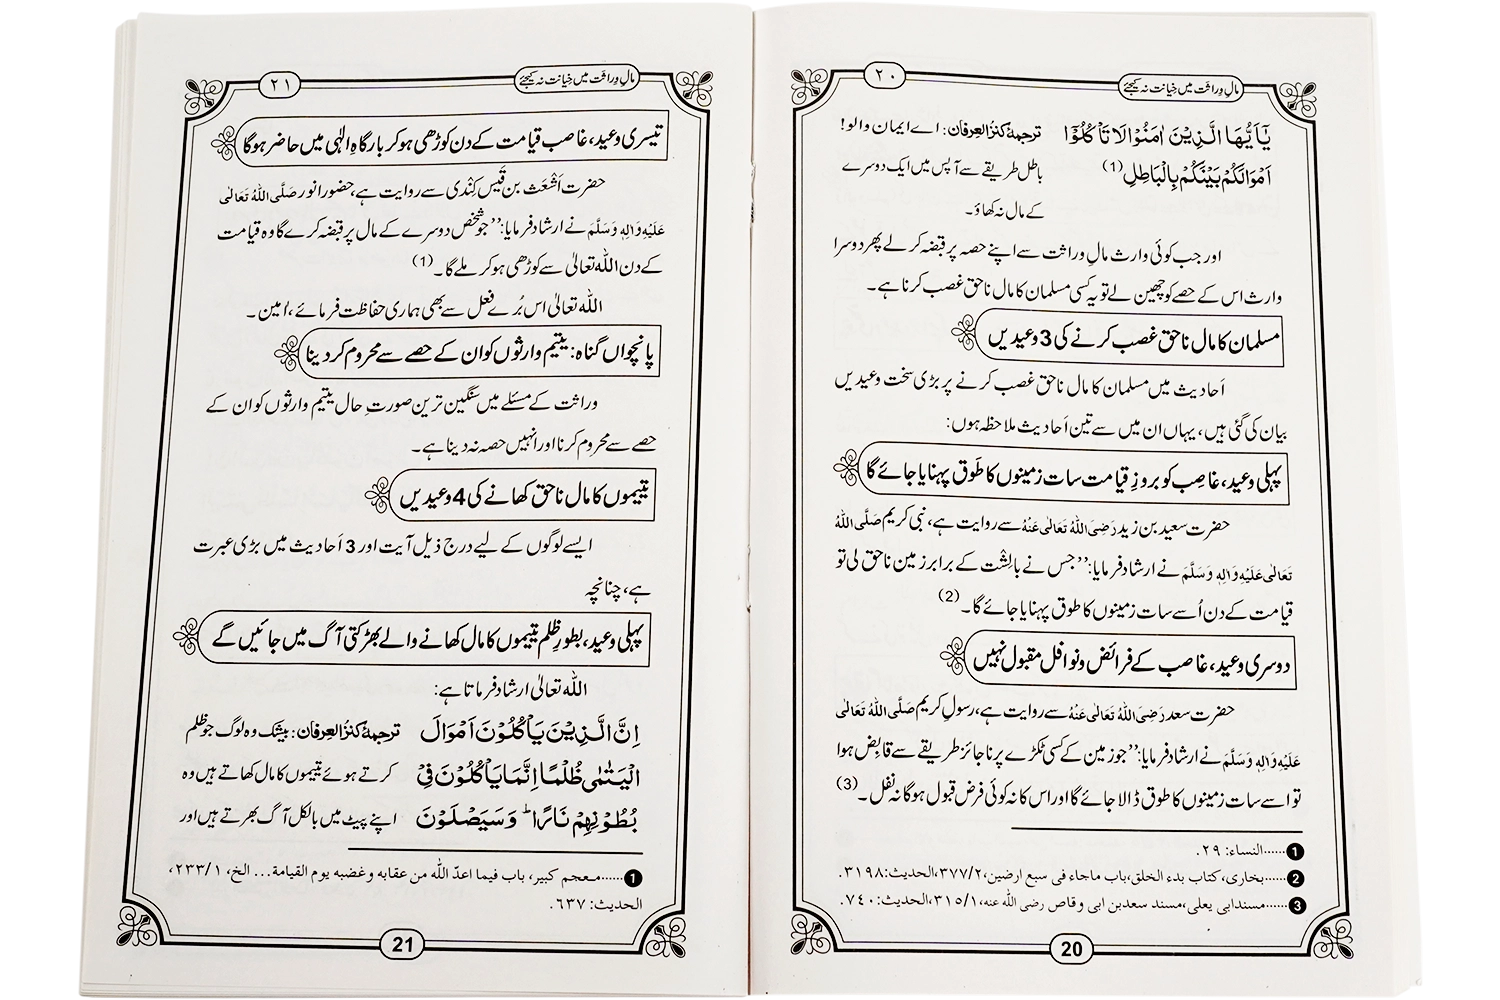 مالِ وراثت میں خیانت نہ کیجئے
۲۰
یٰۤاَیُّهَا الَّذِیْنَ اٰمَنُوْا لَا تَاْكُلُوْۤا
اَمْوَالَكُمْ بَیْنَكُمْ بِالْبَاطِلِ (1)
ترجمۂ کنزُ العِرفان: اے ایمان والو!
باطل طریقے سے آپس میں ایک دوسرے
کے مال نہ کھاؤ۔
اور جب کوئی وارث مالِ وراثت سے اپنے حصہ پر قبضہ کر لے پھر دوسرا
وارث اس کے حصے کو چھین لے تو یہ کسی مسلمان کا مال ناحق غصب کرنا ہے۔
مسلمان کا مال ناحق غصب کرنے کی 3 وعیدیں
اَحادیث میں مسلمان کا مال ناحق غصب کرنے پر بڑی سخت وعیدیں
بیان کی گئی ہیں، یہاں ان میں سے تین اَحادیث ملاحظہ ہوں:
پہلی وعید، غاصِب کو بروزِ قیامت سات زمینوں کا طَوق پہنایا جائے گا
حضرت سعید بن زید رَضِیَ اللہُ تَعَالٰی عَنْہُ سے روایت ہے، نبی کریم صَلَّی اللہُ
تَعَالٰی عَلَیْہِ وَاٰلِہٖ وَسَلَّمَ نے ارشاد فرمایا: ’’جس نے بالِشْت کے برابر زمین ناحق لی تو
قیامت کے دن اُسے سات زمینوں کا طوق پہنایا جائے گا۔ (2)
دوسری وعید، غاصب کے فرائض و نوافل مقبول نہیں
حضرت سعد رَضِیَ اللہُ تَعَالٰی عَنْہُ سے روایت ہے، رسولِ کریم صَلَّی اللہُ تَعَالٰی
عَلَیْہِ وَاٰلِہٖ وَسَلَّمَ نے ارشاد فرمایا: ’’جو زمین کے کسی ٹکڑے پر ناجائز طریقے سے قابِض ہوا
تو اسے سات زمینوں کا طوق ڈالا جائے گا اور اس کا نہ کوئی فرض قبول ہو گا نہ نفل۔ (3)
1 ......النساء: ۲۹.
2 ......بخاری، کتاب بدء الخلق، باب ماجاء فی سبع ارضین، ۲/۳۷۷، الحدیث: ۳۱۹۸.
3 ......مسند ابی یعلی، مسند سعد بن ابی وقاص رضی اللہ عنہ، ۱/۳۱۵، الحدیث: ۷۴۰.
20
مالِ وراثت میں خیانت نہ کیجئے
۲۱
تیسری وعید، غاصب قیامت کے دن کوڑھی ہو کر بارگاہِ الٰہی میں حاضر ہو گا
حضرت اَشْعَث بن قَیس کِنْدی سے روایت ہے، حضور انور صَلَّی اللہُ تَعَالٰی
عَلَیْہِ وَاٰلِہٖ وَسَلَّمَ نے ارشاد فرمایا: ’’جو شخص دوسرے کے مال پر قبضہ کرے گا وہ قیامت
کے دن اللہ تعالیٰ سے کوڑھی ہو کر ملے گا۔ (1)
اللہ تعالیٰ اس بُرے فعل سے بھی ہماری حفاظت فرمائے، اٰمین۔
پانچواں گناہ: یتیم وارثوں کو ان کے حصے سے محروم کر دینا
وراثت کے مسئلے میں سنگین ترین صورتِ حال یتیم وارثوں کو ان کے
حصے سے محروم کرنا اور انہیں حصہ نہ دینا ہے۔
یتیموں کا مال ناحق کھانے کی 4 وعیدیں
ایسے لوگوں کے لیے درج ذیل آیت اور 3 اَحادیث میں بڑی عبرت
ہے، چنانچہ
پہلی وعید، بطورِ ظلم یتیموں کا مال کھانے والے بھڑکتی آگ میں جائیں گے
اللہ تعالیٰ ارشاد فرماتا ہے:
اِنَّ الَّذِیْنَ یَاْكُلُوْنَ اَمْوَالَ
الْیَتٰمٰى ظُلْمًا اِنَّمَا یَاْكُلُوْنَ فِیْ
بُطُوْنِهِمْ نَارًاؕ-وَ سَیَصْلَوْنَ
ترجمۂ کنزُ العِرفان: بیشک وہ لوگ جو ظلم
کرتے ہوئے یتیموں کا مال کھاتے ہیں وہ
اپنے پیٹ میں بالکل آگ بھرتے ہیں اور
1 ......معجم کبیر، باب فیما اعدّ اللہ من عقابہ وغضبہ یوم القیامۃ... الخ، ۱/۲۳۳،
الحدیث: ۶۳۷.
21